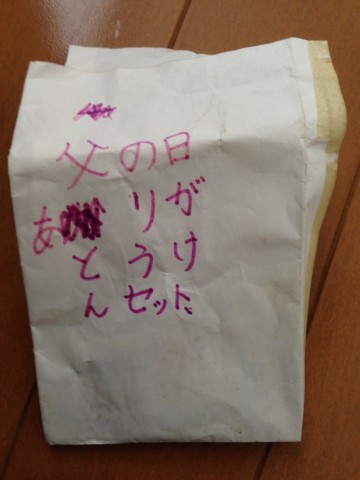 父の日
ありが
とうけ
んセット